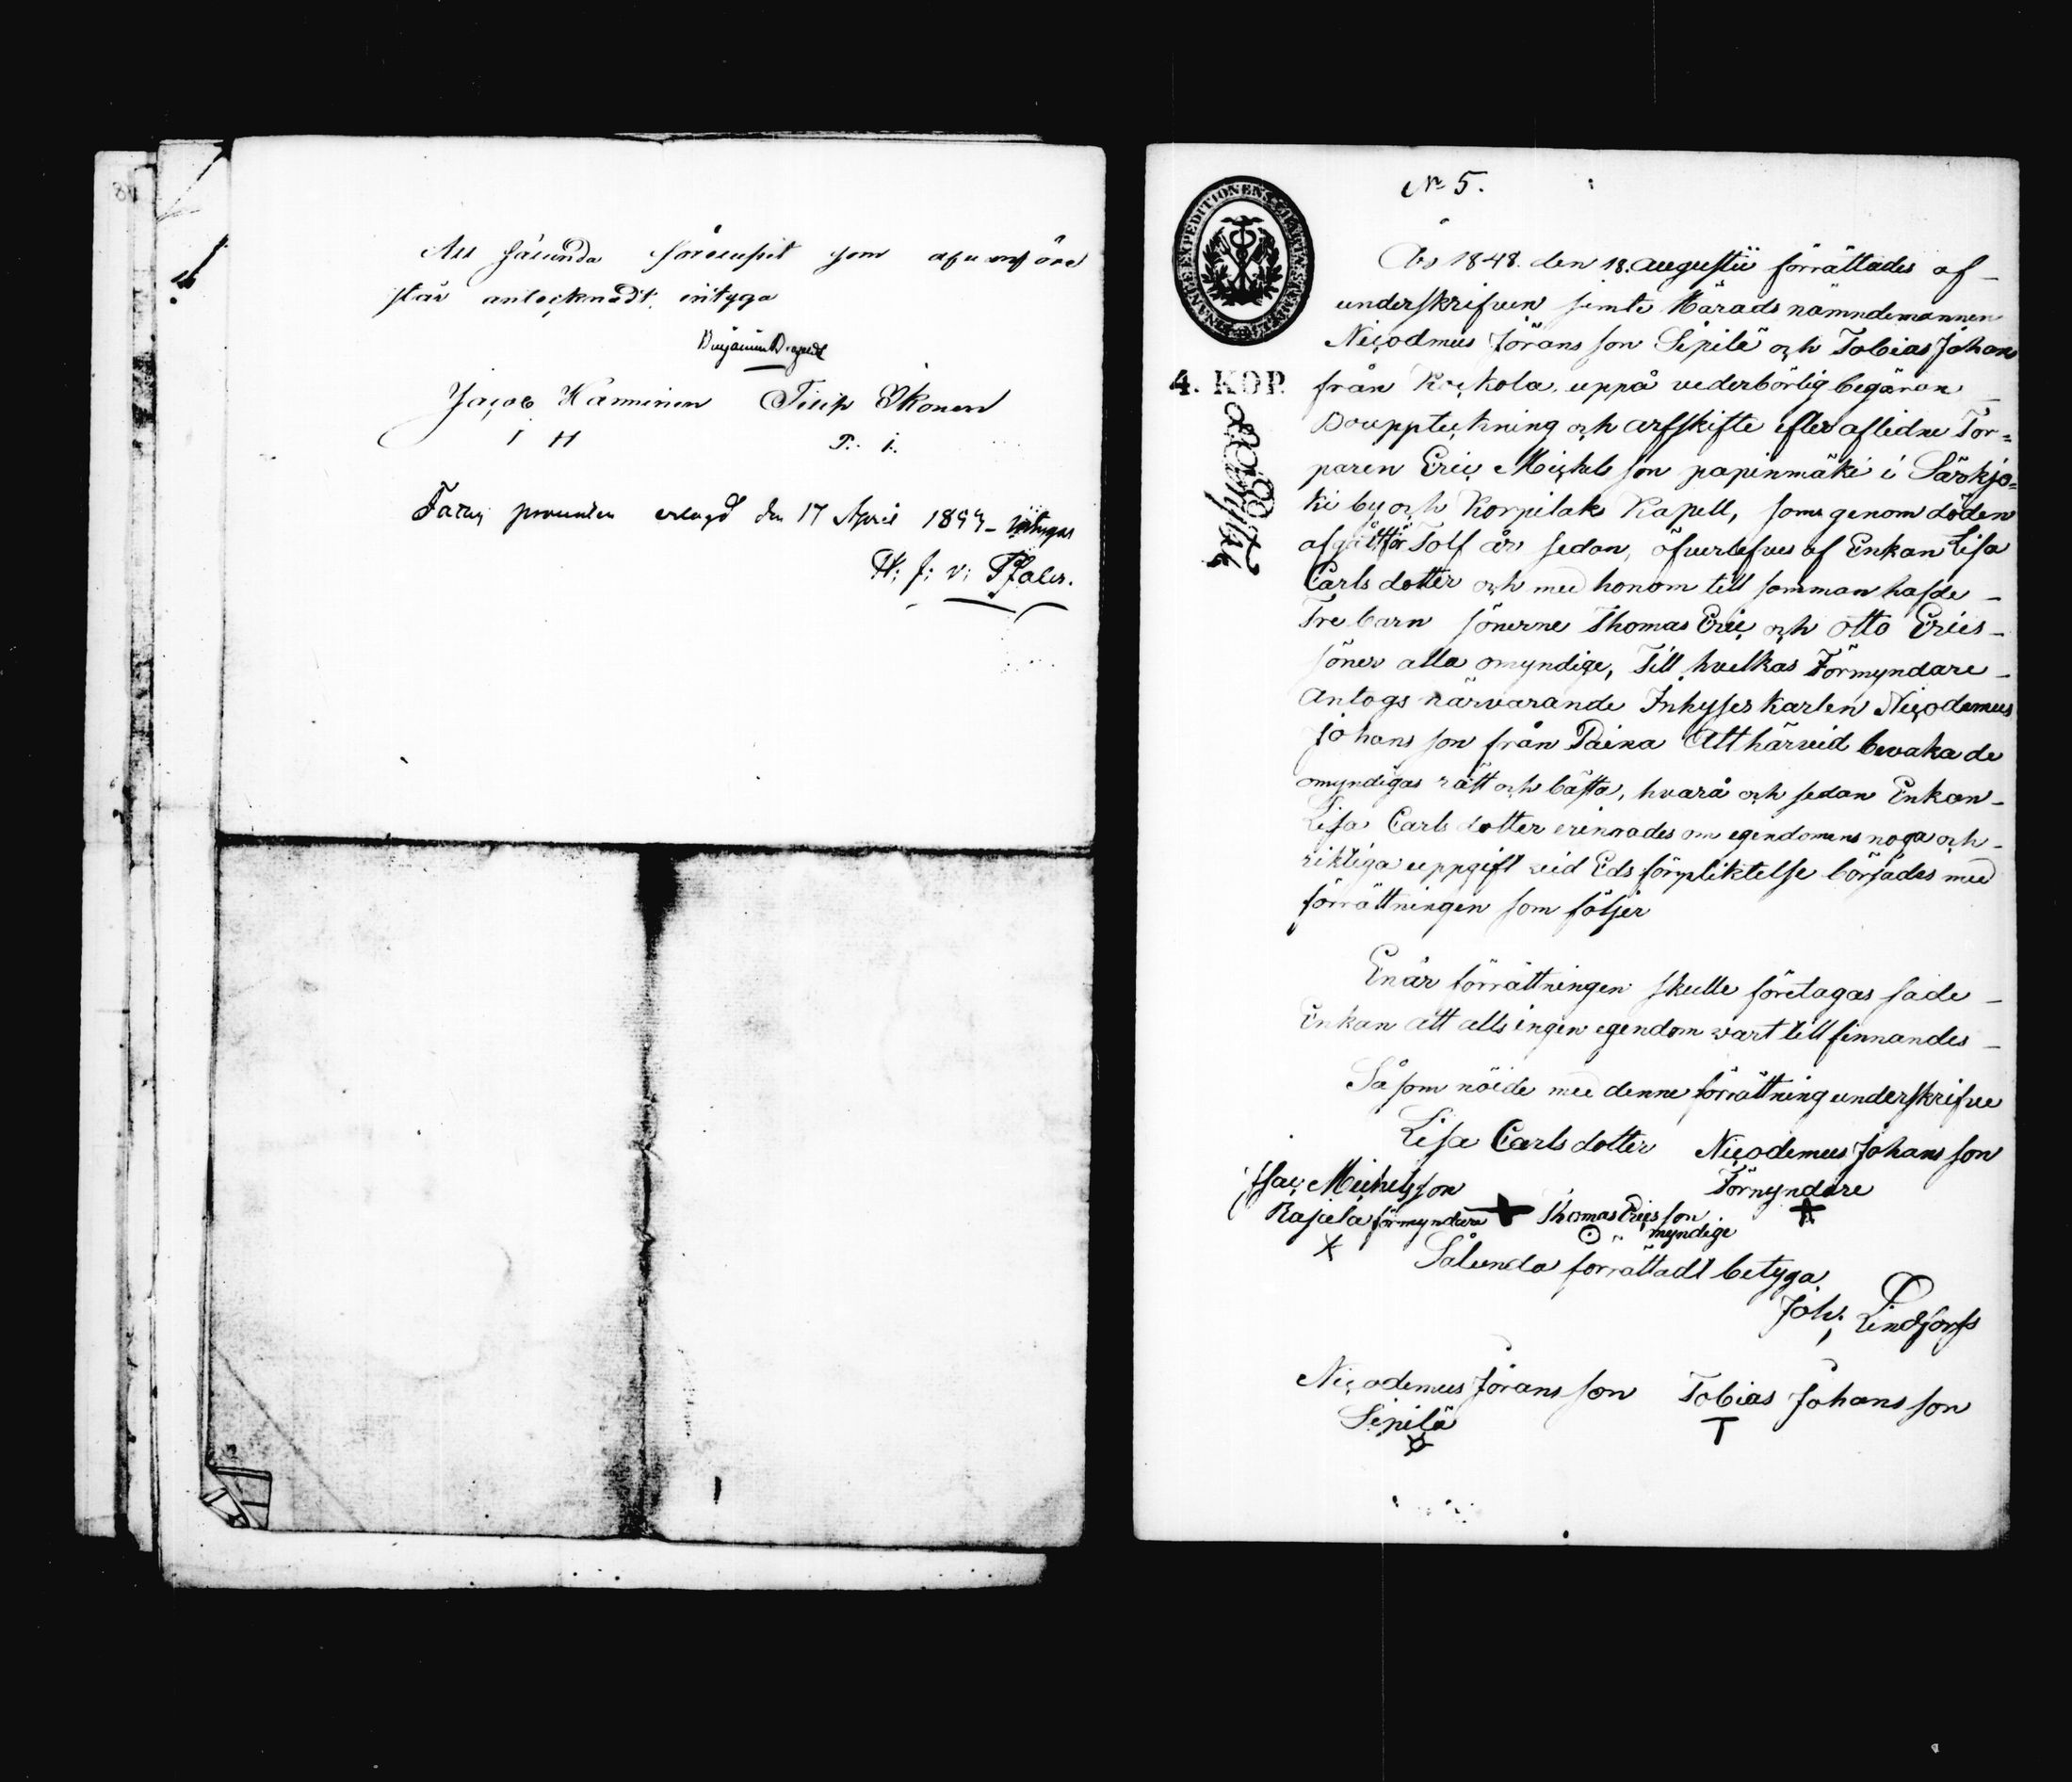 Att således förelupit som ofvanföre
står antecknadt, intyga
Jacob Hanninen Filip Ikonen
I H P. i.
Fattig procenten erlagd den 17 April 1849 intygar
H: f: v: Pfaler.
No 5.
4. KOP.
Års 1848. den 18. Augustii förrättades af
underskrifven jemte Härads nämndemannen
Niçodmus Jörans son Sipilä och Tobias Johans
från Kockola, uppå vederbörlig begäran
Bouppteckning och arfskifte efter aflidne Tor=
paren Eriç Miçhels son papinmäki i Särkjo=
ki by och Korpilaks Kapell, som genom döden
afgått för Tolf år sedan, öfverlefves af Enkan Lisa
Carls dotter och med honom till samman hafde
Tre barn sönerne Thomas Eriç och Otto Erics
söner alla omyndige, Till hvilkas Förmyndare
Antogs närvarande Inhyses karlen Niçodemus
Johans son från Paina Att härvid bevaka de
omyndigas rätt och bästa, hvarå och sedan Enkan
Lisa Carls dotter erinrades om egendomens noga och
riktiga uppgift vid Eds förpliktelse börjades med
förrättningen som följer
Enär förrättningen skulle företagas sade
Enkan att alls ingen egendom vart till finnandes
Så som nöide med denne förrättning underskrifve
Lisa Carls dotter Niçodemus Johans son
Isaç Miçhels son Förmyndare
Rajala förmyndare Thomas Eriçs son
myndige
Sålunda förrättadt betyga
Joh: Lindfors
Niçodemus Jörans son Tobias Johans son
Sipilä T